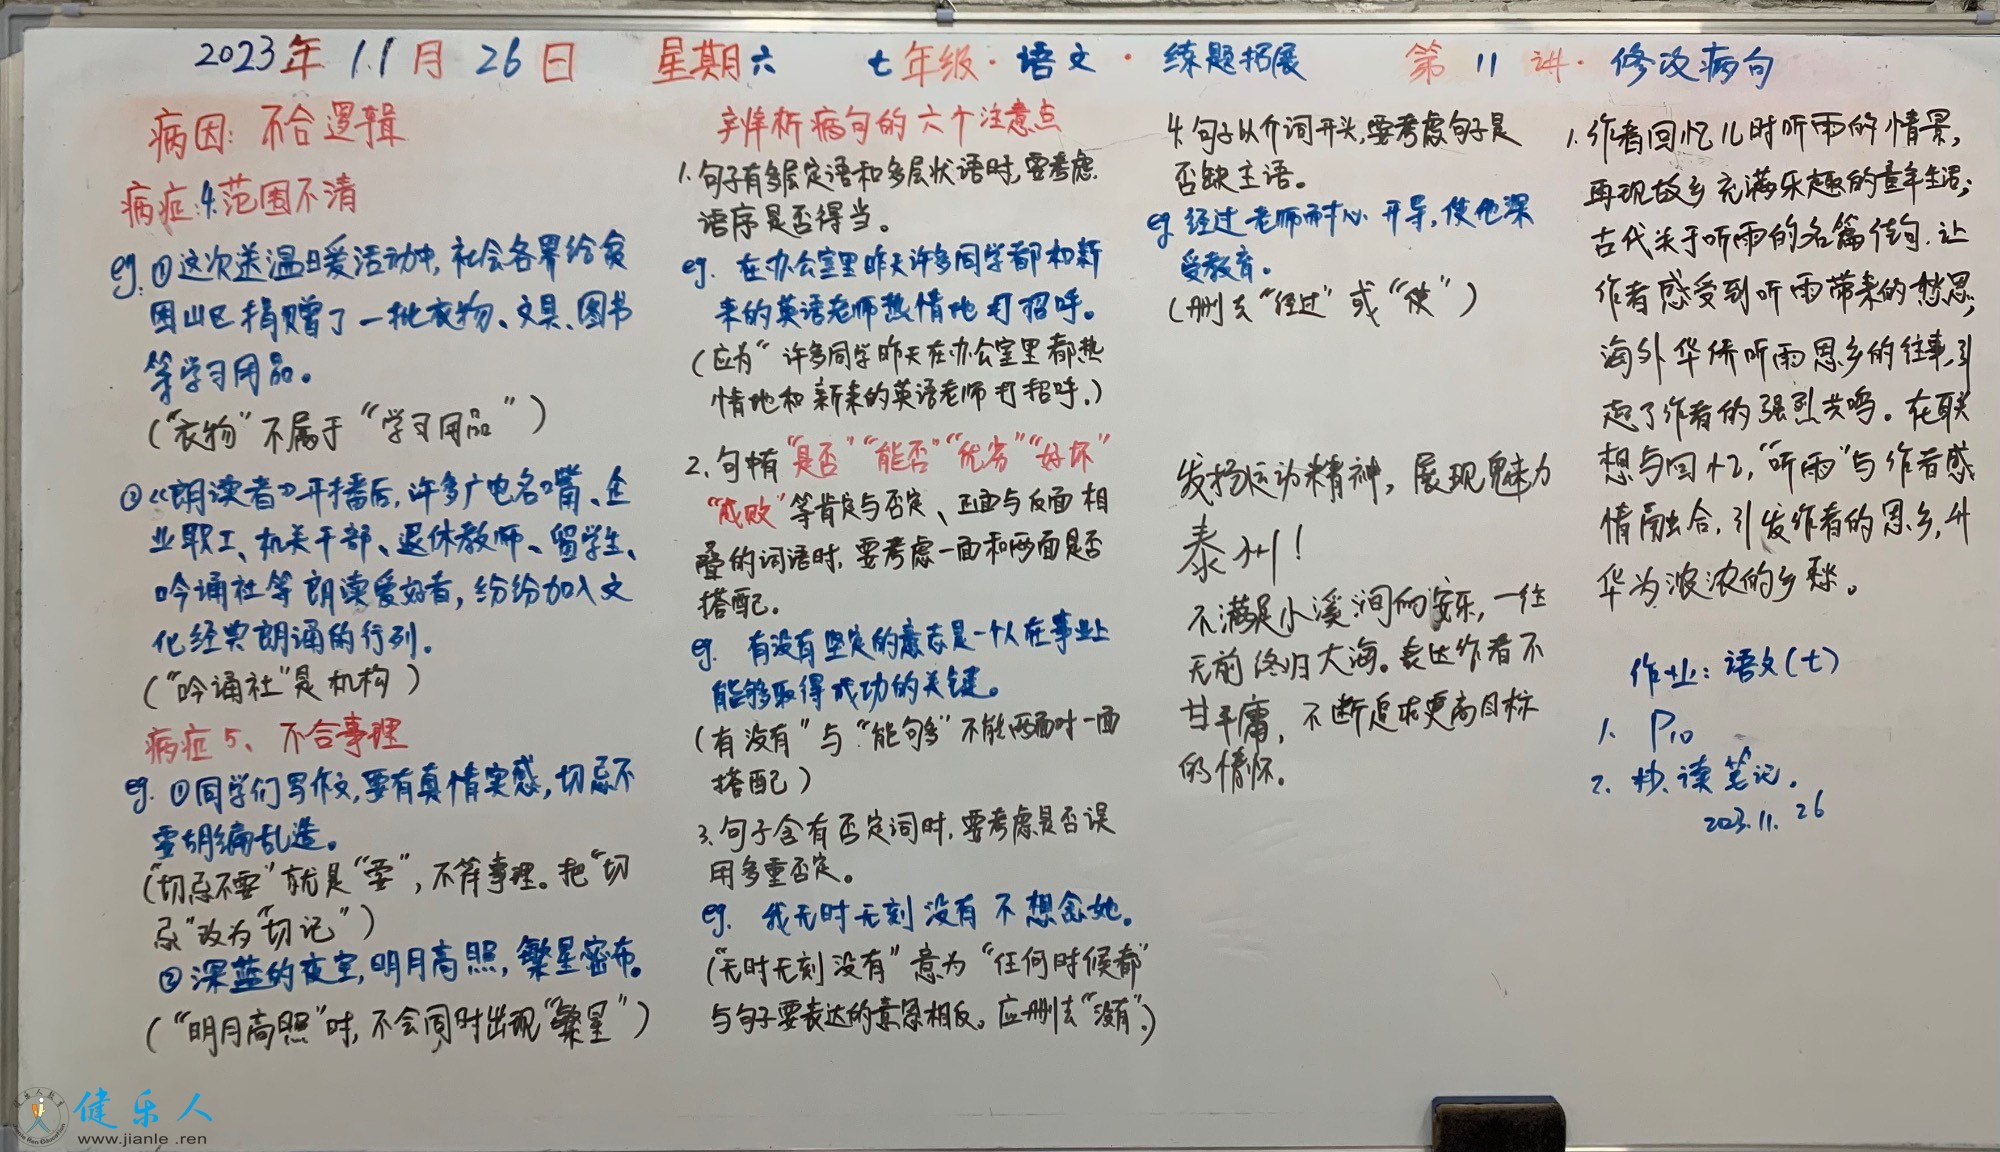 2023年11月26日 星期六 七年级·语文·练题拓展 第11讲·修改病句
病因:不合逻辑
病症:4.范围不清
eg:①这次送温暖活动中,社会各界给贫
困山区捐赠了一批衣物、文具、图书
等学习用品。
(“衣物”不属于“学习用品”)
②《朗读者》开播后,许多广电名嘴、企
业职工、机关干部、退休教师、留学生、
吟诵社等朗读爱好者,纷纷加入文
化经典朗诵的行列。
(“吟诵社”是机构)
病症5、不合事理
eg.①同学们写作文,要有真情实感,切忌不
要胡编乱造。
(“切忌不要”就是“要”,不符事理。把“切
忌”改为“切记”)
②深蓝的夜空,明月高照,繁星密布。
(“明月高照”时,不会同时出现“繁星”)
辨析病句的六个注意点
1.句子有多层定语和多层状语时,要考虑
语序是否得当。
eg.在办公室里昨天许多同学都和新
来的英语老师热情地打招呼。
(应为“许多同学昨天在办公室里都热
情地和新来的英语老师打招呼。)
2.句中有“是否”“能否”“优劣”“好坏”
“成败”等肯定与否定、正面与反面相
叠的词语时,要考虑一面和两面是否
搭配。
eg.有没有坚定的意志是一个人在事业上
能够取得成功的关键。
(有没有”与“能够”不能两面对一面
搭配)
3.句子含有否定词时,要考虑是否误
用多重否定。
eg.我无时无刻没有不想念她。
(“无时无刻没有”意为“任何时候都”
与句子要表达的意思相反。应删去“没有”。)
4.句子以介词开头,要考虑句子是
否缺主语。
eg.经过老师耐心开导,使他深
受教育。
(删去“经过”或“使”)
发扬运动精神,展现魅力
泰州!
不满足小溪涧的安乐,一往
无前终归大海。表达作者不
甘平庸,不断追求更高目标
的情怀。
1.作者回忆儿时听雨的情景,
再现故乡充满乐趣的童年生活;
古代关于听雨的名篇佳句,让
作者感受到听雨带来的愁思;
海外华侨听雨思乡的往事,引
起了作者的强烈共鸣。在联
想与回忆,“听雨”与作者感
情融合,引发作者的思乡,升
华为浓浓的乡愁。
作业:语文(七)
1、P10
2.抄、读笔记。
2023.11.26
健乐人
www.jianle.ren